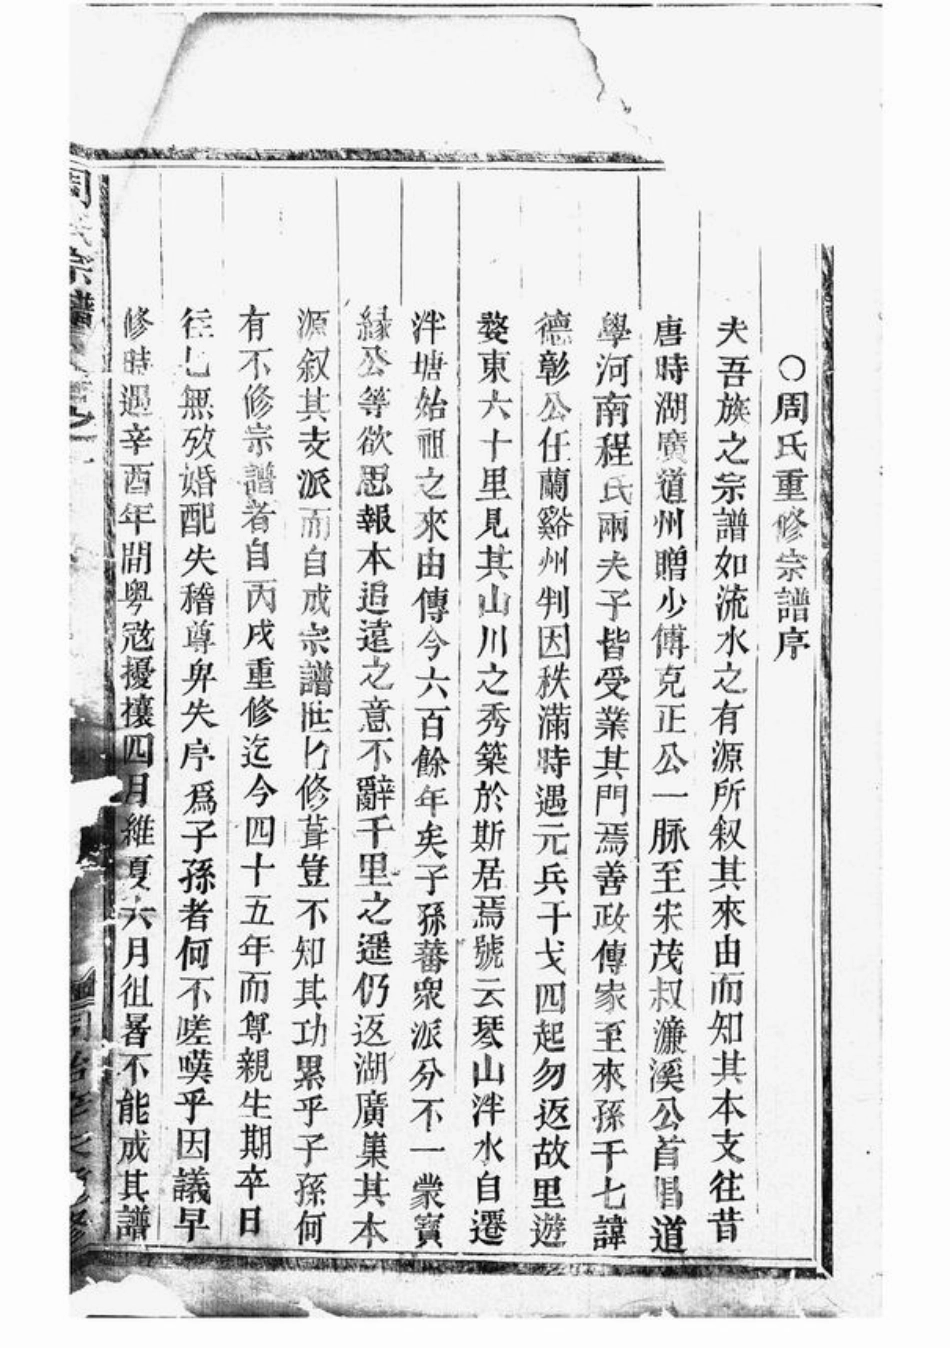 ○周氏重修宗譜序
夫吾族之宗譜如流水之有源所叙其來由而知其本支往昔
唐時湖廣道州贈少傅克正公一脉至宋茂叔濂溪公首唱道
學河南程氏兩夫子皆受業其門焉善政傳家至來孫千七諱
德彰公任蘭谿州判因秩滿時遇元兵干戈四起勿返故里遊
婺東六十里見其山川之秀築於斯居焉號云琴山泮水自遷
泮塘始祖之來由傳今六百餘年矣子孫蕃衆派分不一蒙寶
緣公等欲思報本追遠之意不辭千里之遥仍返湖廣集其本
源叙其支派而自成宗譜世匕修葺豈不知其功累乎子孫何
有不修宗譜者自丙戌重修迄今四十五年而尊親生期卒日
往匕無攷婚配失稽尊卑失序爲子孫者何不嗟嘆乎因議早
修時遇辛酉年間粤宼擾攘四月維夏六月徂暑不能成其譜
周氏宗譜 卷之一